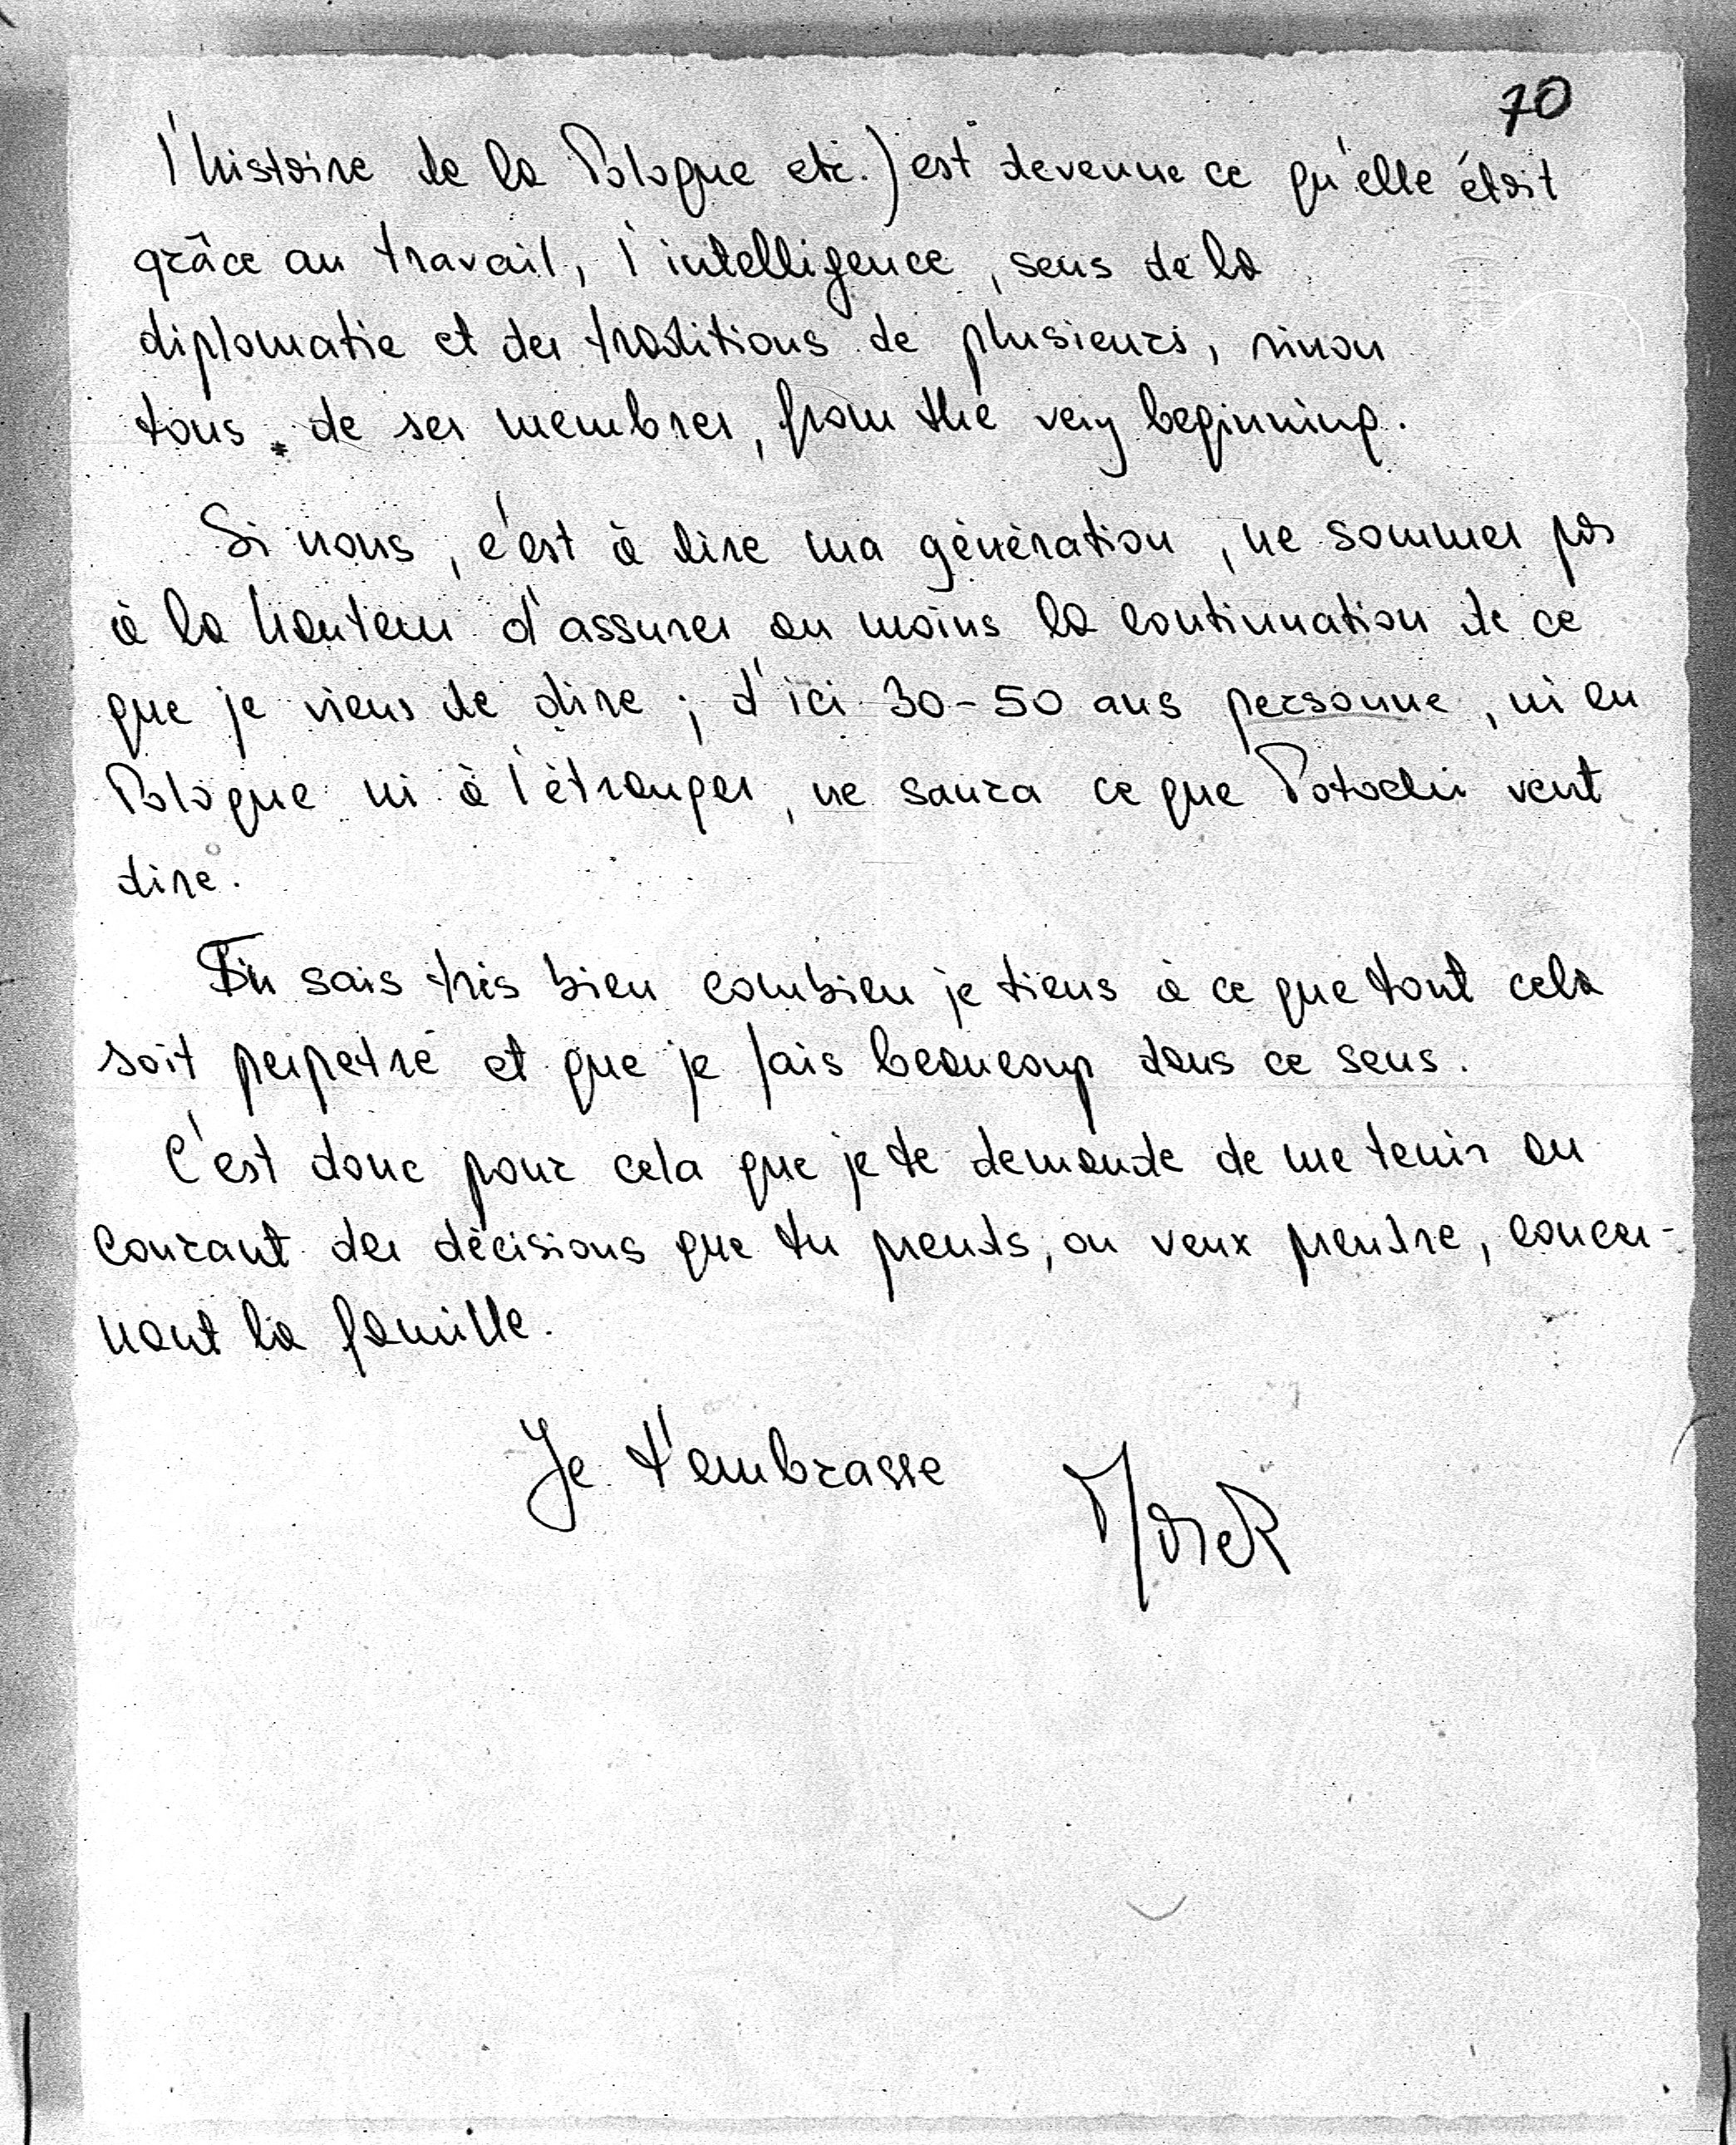 70
l'histoire de la Pologne etc.) est devenue ce qu'elle était
grâce au travail, l'intelligence, sens de la
diplomatie et des traditions de plusieurs, sinon
tous de ses membres, from the very beginning.
Si nous, c'est à dire ma génération, ne sommes pas
à la hauteur d'assurer au moins la continuation de ce
que je viens de dire ; d'ici 30-50 ans personne, ni en
Pologne ni à l'étranger, ne saura ce que Potocki veut
dire.
Tu sais très bien combien je tiens à ce que tout cela
soit perpetré et que je fais beaucoup dans ce sens.
C'est donc pour cela que je te demande de me tenir au
courant des décisions que tu prends, ou veux prendre, concer-
nant la famille.
Je t'embrasse Marek